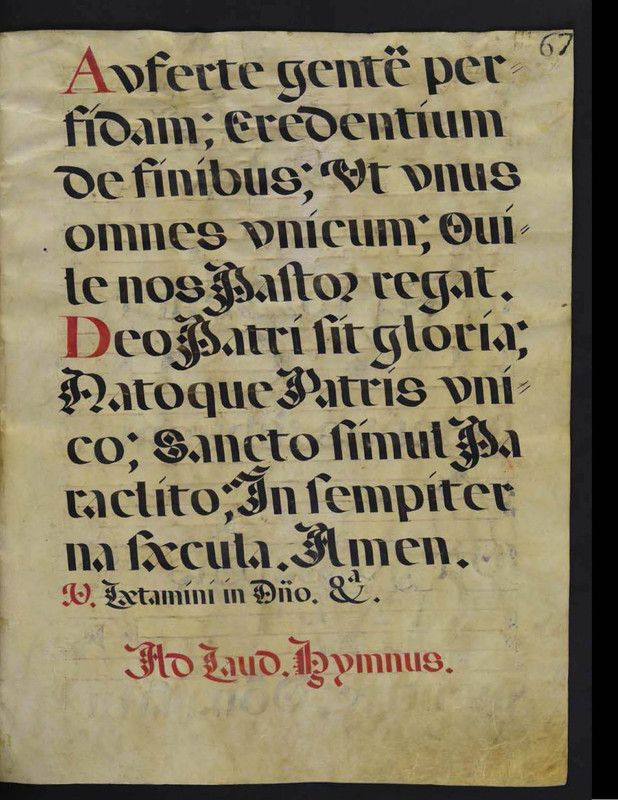 67
Avferte gentẽ per=
fidam; Credentium
de finibus; Vt vnus
omnes vnicum; Oui=
le nos Pastor regat.
Deo Patri sit gloria;
Natoque Patris vni=
co; Sancto simul Pa
raclito; In sempiter
na sæcula. Amen.
V. Lætamini in Dño. &ª.
Ad Laud. Hymnus.